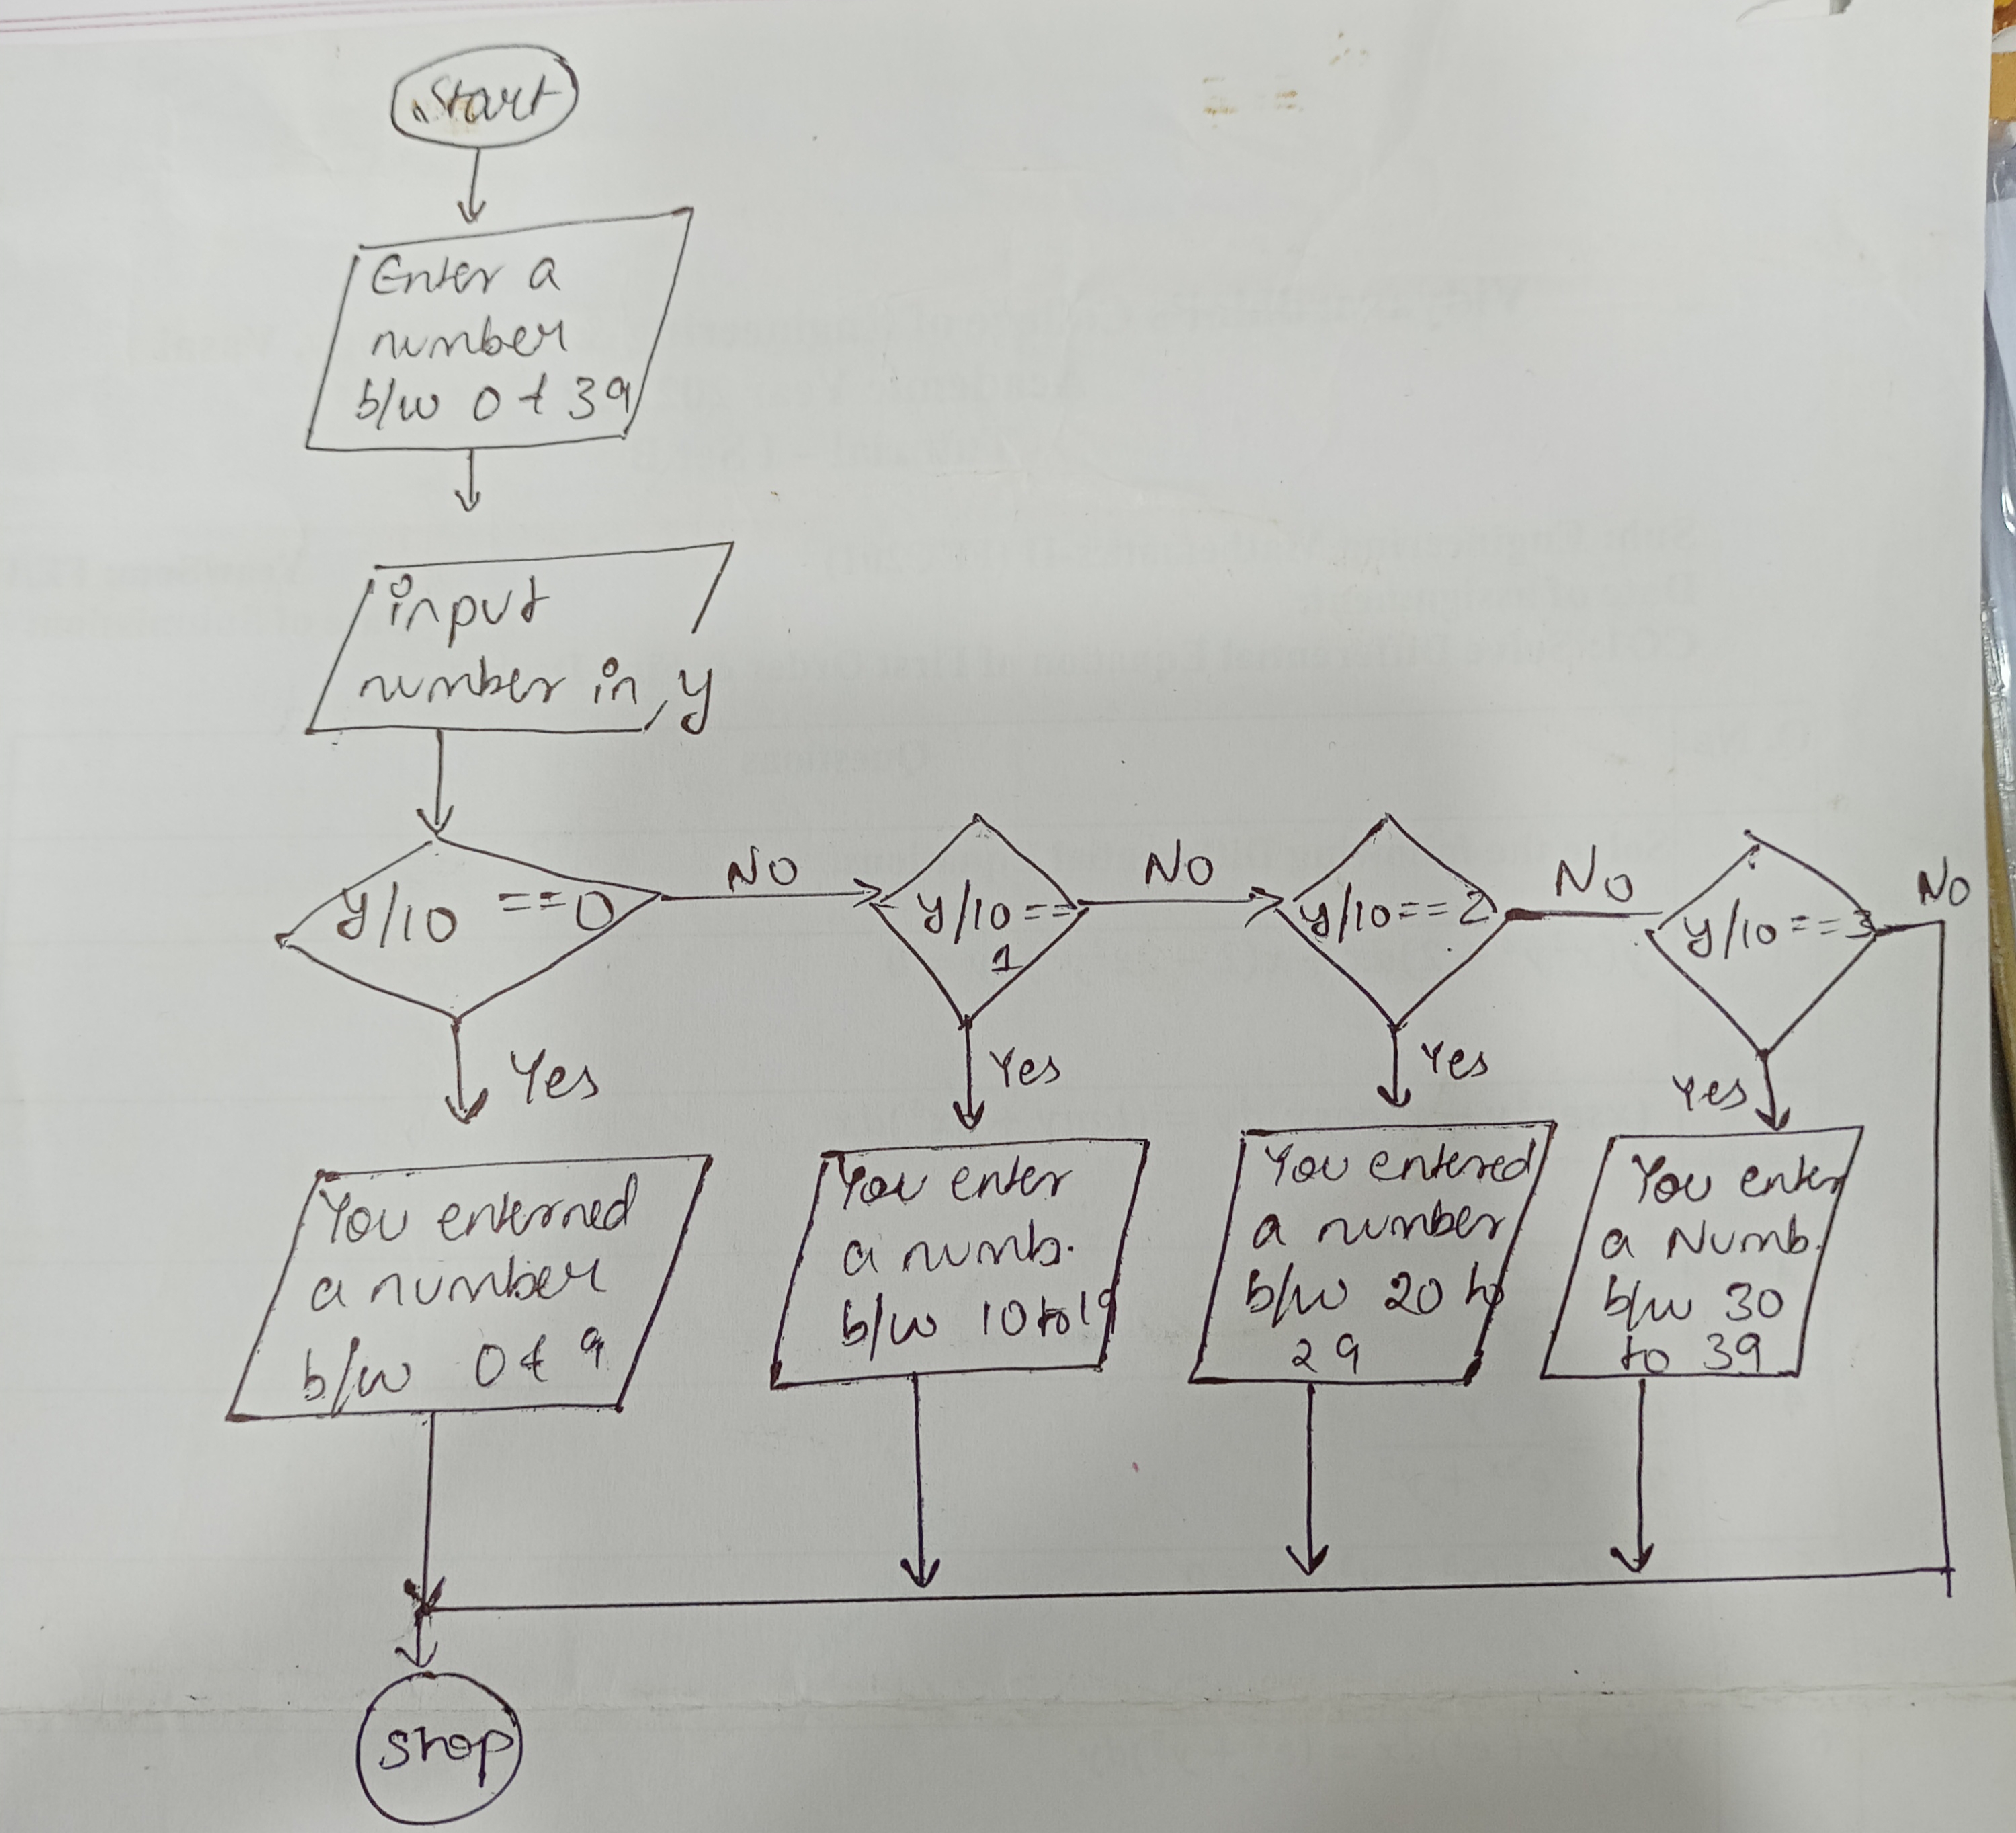 Start
Enter a
number
b/w 0 & 39
input
number in y
y/10 ==0
NO
y/10==
1
NO
y/10==2
NO
y/10==3
NO
Yes
Yes
Yes
Yes
You enterned
a number
b/w 0 & 9
You enter
a numb.
b/w 10 to 19
You entered
a number
b/w 20 to
29
You enter
a Numb.
b/w 30
to 39
Stop